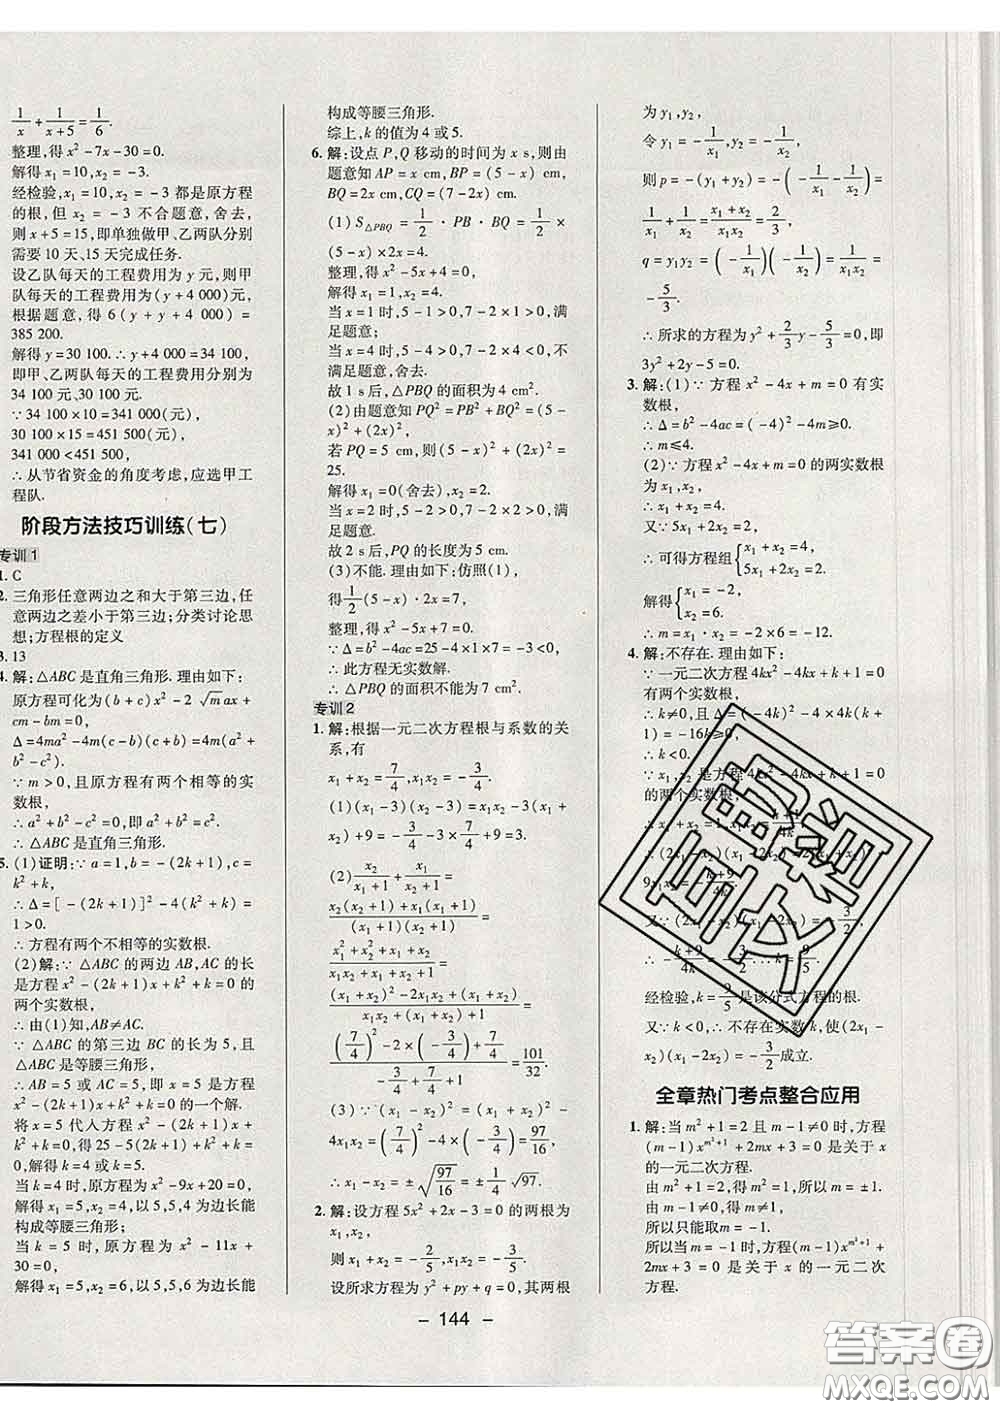 1/x + 1/(x+5) = 1/6.
整理,得 x²-7x-30=0.
解得 x₁=10,x₂=-3.
经检验,x₁=10,x₂=-3 都是原方程
的根,但 x₂=-3 不合题意,舍去,
则 x+5=15,即单独做甲、乙两队分别
需要 10 天、15 天完成任务.
设乙队每天的工程费用为 y 元,则甲
队每天的工程费用为(y+4 000)元,
根据题意,得 6(y+y+4 000)=
385 200.
解得 y=30 100.∴y+4 000=34 100,
即甲、乙两队每天的工程费用分别为
34 100 元、30 100 元.
∵34 100×10=341 000(元),
30 100×15=451 500(元),
341 000<451 500,
∴从节省资金的角度考虑,应选甲工
程队.
阶段方法技巧训练(七)
专训1
1. C
2. 三角形任意两边之和大于第三边,任
意两边之差小于第三边;分类讨论思
想;方程根的定义
3. 13
4. 解:△ABC 是直角三角形.理由如下:
原方程可化为(b+c)x²-2√m ax+
cm-bm=0,
Δ=4ma²-4m(c-b)(c+b)=4m(a²+
b²-c²).
∵m>0,且原方程有两个相等的实
数根,
∴a²+b²-c²=0,即 a²+b²=c².
∴△ABC 是直角三角形.
5. (1)证明:∵a=1,b=-(2k+1),c=
k²+k,
∴Δ=[-(2k+1)]²-4(k²+k)=
1>0.
∴方程有两个不相等的实数根.
(2)解:∵△ABC 的两边 AB,AC 的长
是方程 x²-(2k+1)x+k²+k=0 的
两个实数根,
∴由(1)知,AB≠AC.
∵△ABC 的第三边 BC 的长为 5,且
△ABC 是等腰三角形,
∴AB=5 或 AC=5,即 x=5 是方程
x²-(2k+1)x+k²+k=0 的一个解.
将 x=5 代入方程 x²-(2k+1)x+
k²+k=0,得 25-5(2k+1)+k²+k=
0,解得 k=4 或 k=5.
当 k=4 时,原方程为 x²-9x+20=0,
解得 x₁=5,x₂=4,以 5,5,4 为边长能
构成等腰三角形;
当 k=5 时,原方程为 x²-11x+
30=0,
解得 x₁=5,x₂=6,以 5,5,6 为边长能
构成等腰三角形.
综上,k 的值为 4 或 5.
6. 解:设点 P,Q 移动的时间为 x s,则由
题意知 AP=x cm,PB=(5-x)cm,
BQ=2x cm,CQ=(7-2x)cm.
(1)S△PBQ=1/2·PB·BQ=1/2×
(5-x)·2x=4.
整理,得 x²-5x+4=0.
解得 x₁=1,x₂=4.
当 x=1 时,5-1>0,7-2×1>0,满
足题意;
当 x=4 时,5-4>0,7-2×4<0,不
满足题意,舍去.
故 1 s 后,△PBQ 的面积为 4 cm².
(2)由题意知 PQ²=PB²+BQ²=(5-
x)²+(2x)²,
若 PQ=5 cm,则(5-x)²+(2x)²=
25.
解得 x₁=0(舍去),x₂=2.
当 x=2 时,5-2>0,7-2×2>0,满
足题意.
故 2 s 后,PQ 的长度为 5 cm.
(3)不能.理由如下:仿照(1),
得 1/2(5-x)·2x=7.
整理,得 x²-5x+7=0.
∵Δ=b²-4ac=25-4×1×7=-3<0,
∴此方程无实数解.
∴△PBQ 的面积不能为 7 cm².
专训2
1. 解:根据一元二次方程根与系数的关
系,有
x₁+x₂=7/4,x₁x₂=-3/4.
(1)(x₁-3)(x₂-3)=x₁x₂-3(x₁+
x₂)+9=-3/4-3×7/4+9=3.
(2)x₂/(x₁+1)+x₁/(x₂+1)=
[x₂(x₂+1)+x₁(x₁+1)]/[(x₁+1)(x₂+1)]=
(x₁²+x₂²+x₁+x₂)/(x₁x₂+x₁+x₂+1)=
[(x₁+x₂)²-2x₁x₂+(x₁+x₂)]/[x₁x₂+(x₁+x₂)+1]=
[(7/4)²-2×(-3/4)+7/4]/(-3/4+7/4+1)=101/32.
(3)∵(x₁-x₂)²=(x₁+x₂)²-
4x₁x₂=(7/4)²-4×(-3/4)=97/16,
∴x₁-x₂=±√(97/16)=±1/4√97.
2. 解:设方程 5x²+2x-3=0 的两根为
x₁,x₂,
则 x₁+x₂=-2/5,x₁x₂=-3/5.
设所求方程为 y²+py+q=0,其两根
为 y₁,y₂,
令 y₁=-1/x₁,y₂=-1/x₂.
则 p=-(y₁+y₂)=-(-1/x₁-1/x₂)=
1/x₁+1/x₂=(x₁+x₂)/(x₁x₂)=2/3,
q=y₁y₂=(-1/x₁)(-1/x₂)=1/(x₁x₂)=
-5/3.
∴所求的方程为 y²+2/3y-5/3=0,即
3y²+2y-5=0.
3. 解:(1)∵方程 x²-4x+m=0 有实
数根,
∴Δ=b²-4ac=(-4)²-4m≥0.
∴m≤4.
(2)∵方程 x²-4x+m=0 的两实数根
为 x₁,x₂,
∴x₁+x₂=4.
又∵5x₁+2x₂=2,
∴可得方程组{x₁+x₂=4, 5x₁+2x₂=2.
解得{x₁=-2, x₂=6.
∴m=x₁·x₂=-2×6=-12.
4. 解:不存在.理由如下:
∵一元二次方程 4kx²-4kx+k+1=0
有两个实数根,
∴k≠0,且 Δ=(-4k)²-4×4k(k+
1)=-16k≥0.
∴k<0.
∵x₁,x₂ 是方程 4kx²-4kx+k+1=0
的两个实数根,
∴x₁+x₂=1,x₁x₂=(k+1)/4k.
∴(2x₁-x₂)(x₁-2x₂)=2(x₁+x₂)²-
9x₁x₂=-(k+9)/4k.
又∵(2x₁-x₂)(x₁-2x₂)=-3/2,
∴-(k+9)/4k=-3/2.∴k=9/5.
经检验,k=9/5 是该分式方程的根.
又∵k<0,∴不存在实数 k,使(2x₁-
x₂)(x₁-2x₂)=-3/2成立.
全章热门考点整合应用
1. 解:当 m²+1=2 且 m-1≠0 时,方程
(m-1)x^(m²+1)+2mx+3=0 是关于 x
的一元二次方程.
由 m²+1=2,得 m²=1,所以 m=±1.
由 m-1≠0,得 m≠1,
所以只能取 m=-1.
所以当 m=-1 时,方程(m-1)x^(m²+1)+
2mx+3=0 是关于 x 的一元二次
方程.
- 144 -
答案圈
MXQE.COM